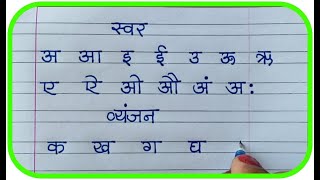 स्वर
अ आ इ ई उ ऊ ऋ
ए ऐ ओ औ अं अः
व्यंजन
क ख ग घ